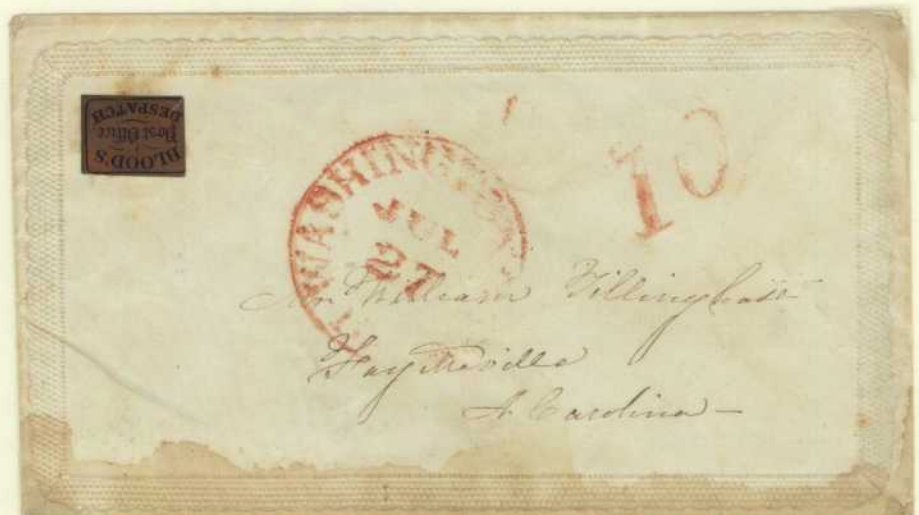 BLOOD'S
Post Office
DESPATCH
WASHINGTON
JUL
27
10
Mr William Tillinghast
Fayetteville
N. Carolina –